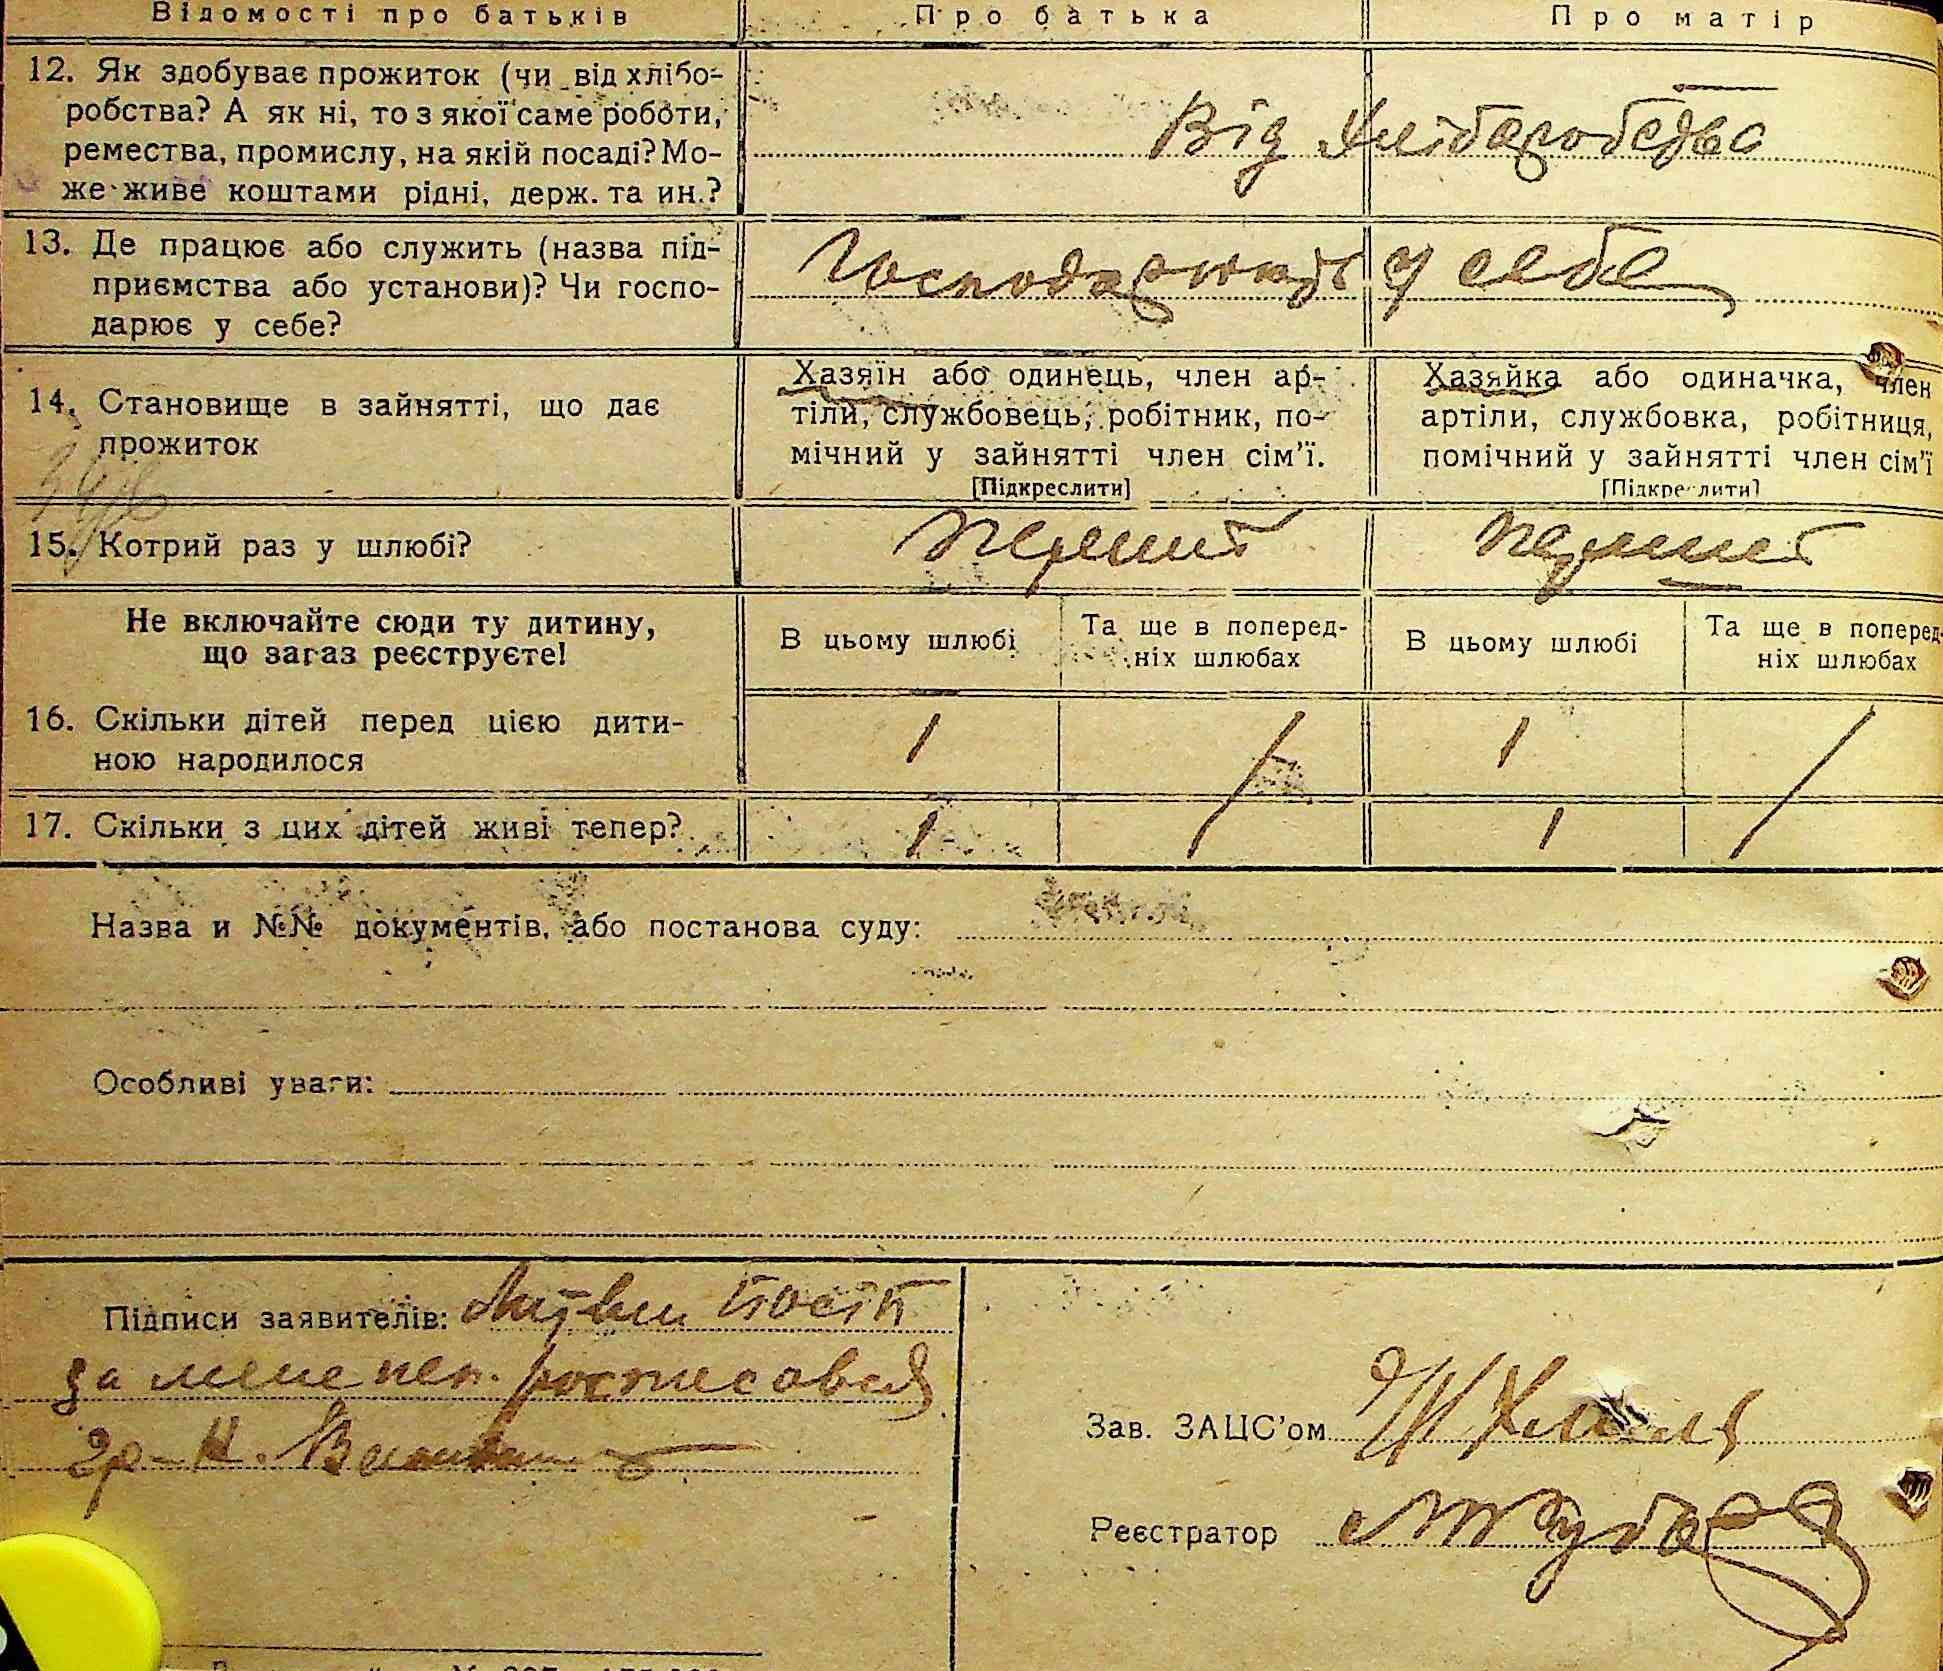 Відомості про батьків Про батька Про матір
12. Як здобуває прожиток (чи від хлібо-
робства? А як ні, то з якої саме роботи,
ремества, промислу, на якій посаді? Мо-
же живе коштами рідні, держ. та ин.?
Від Хліборобства
13. Де працює або служить (назва під-
приємства або установи)? Чи госпо-
дарює у себе?
Господарюють у себе
14. Становище в зайнятті, що дає
прожиток
Хазяїн або одинець, член ар-
тіли, службовець, робітник, по-
мічний у зайнятті член сім'ї.
[Підкреслити]
Хазяйка або одиначка, член
артіли, службовка, робітниця,
помічний у зайнятті член сім'ї
[Підкреслити]
15. Котрий раз у шлюбі? перший перший
Не включайте сюди ту дитину,
що зараз реєструєте!
В цьому шлюбі
Та ще в поперед-
ніх шлюбах
В цьому шлюбі
Та ще в поперед-
ніх шлюбах
16. Скільки дітей перед цією дити-
ною народилося
1 / 1 /
17. Скільки з цих дітей живі тепер? 1 1
Назва и №№ документів, або постанова суду:
Особливі уваги:
Підписи заявителів:
за мене неп. росписовся
гр-н.
Зав. ЗАЦС'ом
Реєстратор